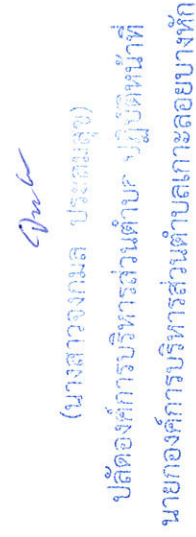 (นางสาวจงกมล ประถมสุข)
ปลัดองค์การบริหารส่วนตำบล ปฏิบัติหน้าที่
นายกองค์การบริหารส่วนตำบลเกาะลอยบางหัก